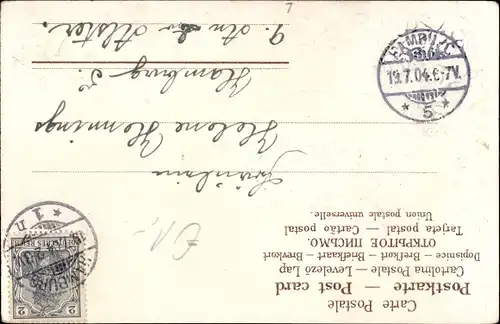 Carte Postale
Postkarte — Post card
Cartolina Postale — Levelező Lap
Dopisnice — Brefkort — Briefkaart — Brevkort
ОТКРЫТОЕ ПИСЬМО.
Tarjeta postal — Cartão postal
Union postale universelle.
Fräulein
Helene Hennings
Hamburg 5.
9. An der Alster.
HAMBURG
19.7.04.6-7V.
* 5 *
2 2
HAMBURG
* 1 n